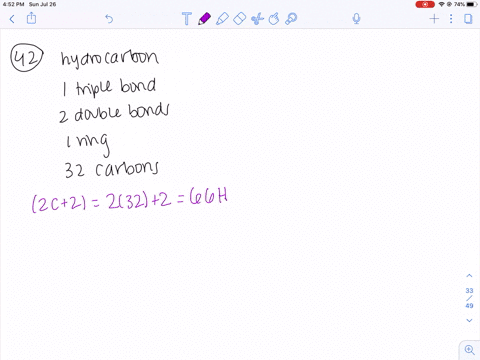 4:52 PM Sun Jul 26
74%
42 hydrocarbon
1 triple bond
2 double bonds
1 ring
32 carbons
(2C+2) = 2(32)+2 = 66H
33
/
49